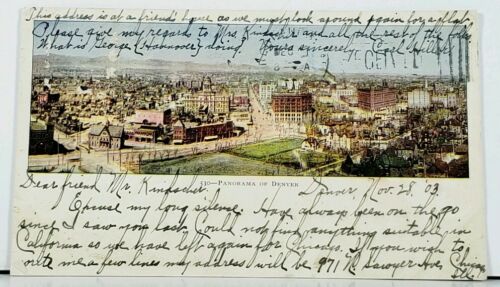 This address is at a friend's house as we must look around again for a flat
Please give my regards to Mrs. Kindscher and all the rest of the folks
What is George (Hannover) doing. Yours sincerely Carl
530—PANORAMA OF DENVER
Dear friend Mr. Kindscher Denver, Nov. 28. 03.
Excuse my long silence. Have always been on the go
since I saw you last. Could not find anything suitable in
California so we have left again for Chicago. If you wish to
write me a few lines my address will be 971 N. Sawyer Ave, Chicago
Ills.